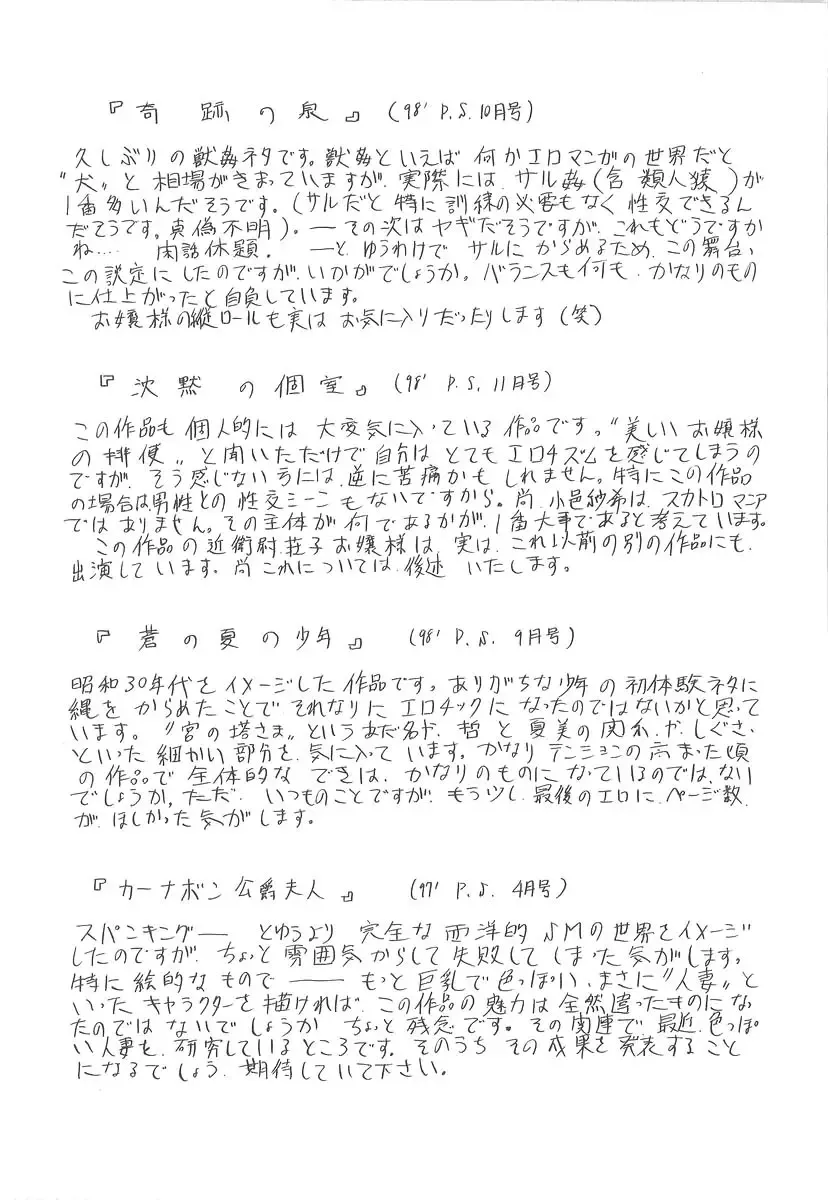 『奇跡の泉』 (98' P.S.10月号)
久しぶりの獣姦ネタです。獣姦といえば 何かエロマンガの世界だと
“犬”と相場がきまっていますが、実際には、サル姦(含 類人猿)が
1番多いんだそうです。(サルだと特に訓練の必要もなく性交できるん
だそうです。真偽不明)。―その次はヤギだそうですが、これもどうですか
ね…… 閑話休題. ―と、ゆうわけで サルに からめるため、この舞台、
この設定にしたのですが、いかがでしょうか。バランスも何も、かなりのもの
に仕上がったと自負しています。
お嬢様の縦ロールも実は お気に入りだったりします(笑)
『沈黙の個室』 (98' P.S.11月号)
この作品も 個人的には 大変気に入っている 作品です。“美しいお嬢様
の排便”と聞いただけで自分は とても エロチズムを感じてしまうの
ですが、そう感じない方には、逆に苦痛かも しれません。特にこの作品
の場合は男性との性交シーンもないですから。尚、小邑紗希は、スカトロマニア
ではありません。その主体が何であるかが、1番大事であると考えています。
この作品の近衛尉荘子お嬢様は、実は、これ以前の別の作品にも、
出演しています。尚これについては、後述 いたします。
『蒼の夏の少年』 (98' P.S. 9月号)
昭和30年代をイメージした作品です。ありがちな少年の初体験ネタに
縄をからめたことで それなりに エロチックに なったのではないかと思って
います。“宮の塔さま”というあだ名や、哲と夏美の関係や、しぐさ、
といった細かい部分を、気に入っています。かなりテンションの高まった頃
の作品で 全体的な できは、かなりのものになっているのでは、ない
でしょうか。ただ、いつものことですが、もう少し、最後のエロに、ページ数
が、ほしかった気がします。
『カーナボン公爵夫人』 (97' P.S. 4月号)
スパンキング― とゆうより 完全な 西洋的 SMの世界をイメージ
したのですが、ちょっと雰囲気からして失敗してしまった気がします。
特に絵的なもので―― もっと巨乳で色っぽい、まさに“人妻”と
いった キャラクターを描ければ、この作品の魅力は全然違ったものにな
たのでは ないでしょうか ちょっと 残念です。その関連で、最近、色っぽ
い人妻を、研究しているところです。そのうち その成果を発表すること
になるでしょう、期待していて下さい。